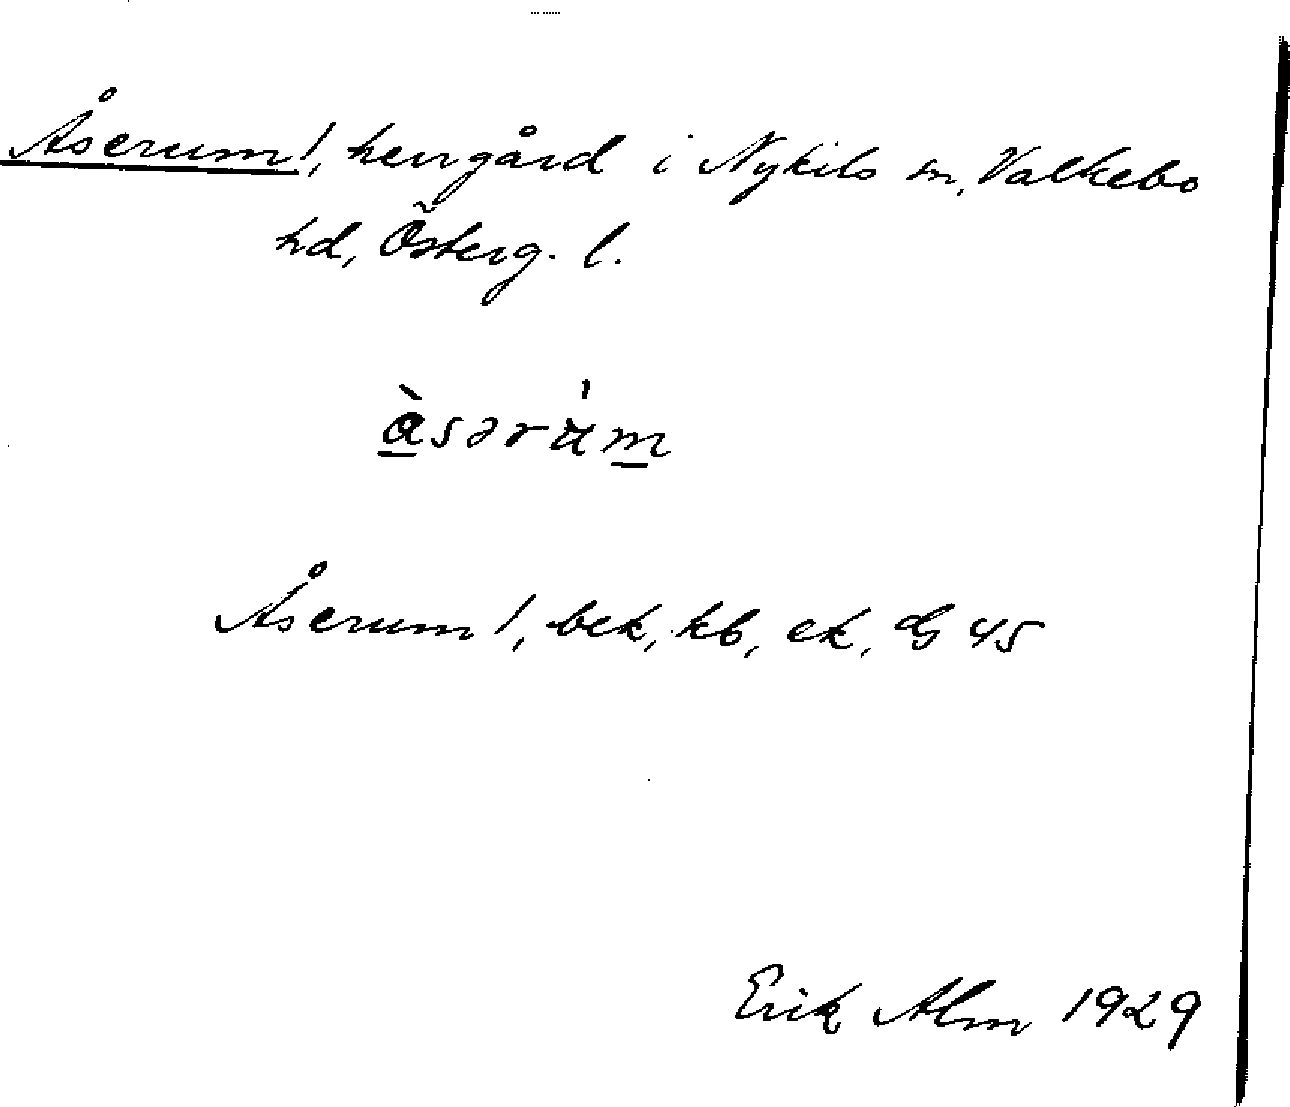 Åserum!, herrgård i Nykils sn, Valkebo
hd, Österg. l.
Åserum!, bek, kb, ek, G 45
Erik Alm 1929